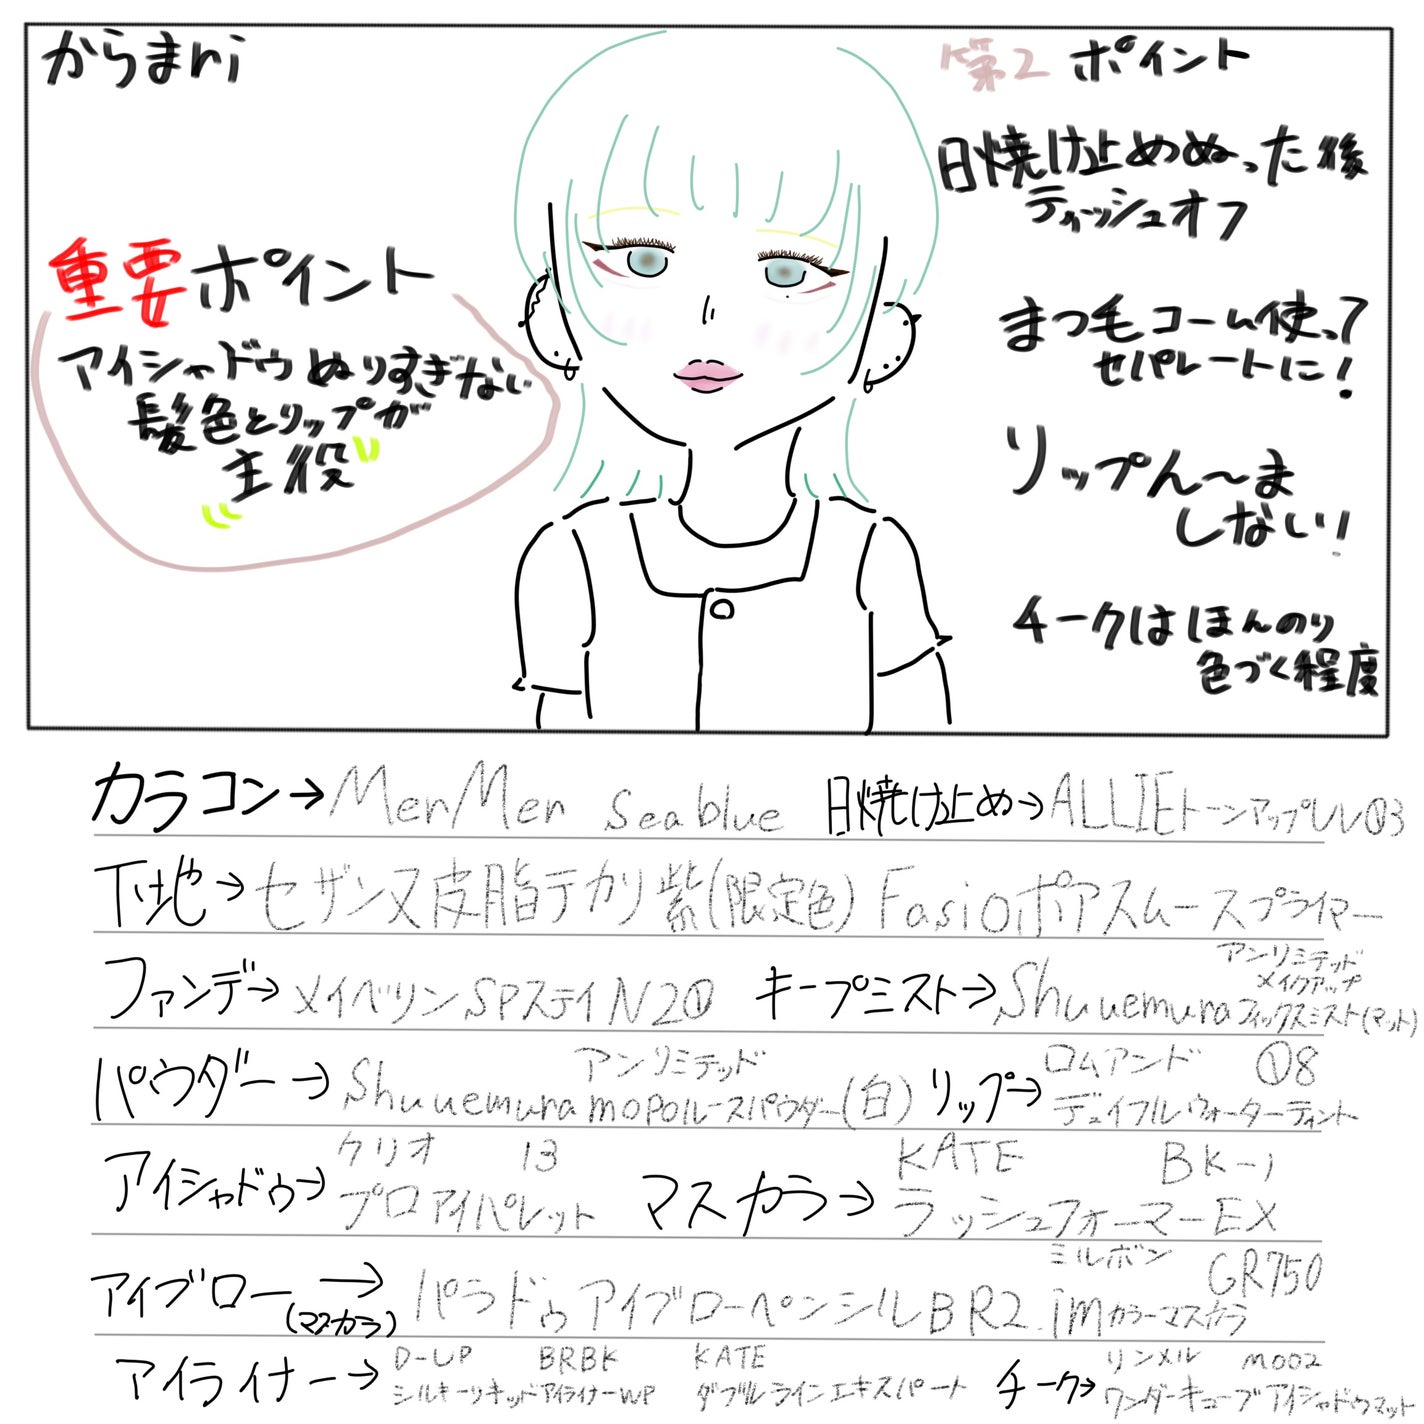 からまri
重要ポイント
アイシャドウぬりすぎない
髪色とリップが
主役
第2 ポイント
日焼け止めぬった後
ティッシュオフ
まつ毛コーム使って
セパレートに!
リップん〜ま
しない!
チークはほんのり
色づく程度
カラコン→MerMer Seablue 日焼け止め→ALLIEトーンアップUV03
下地→セザンヌ皮脂テカリ紫(限定色) Fasioポアスムースプライマー
ファンデ→メイベリンSPステイN20 キープミスト→Shu uemura アンリミテッド
メイクアップ
フィックスミスト(マット)
パウダー→Shu uemura アンリミテッド
mopoルースパウダー(白) リップ→ロムアンド 08
デュイフルウォーターティント
アイシャドゥ→クリオ 13
プロアイパレット マスカラ→KATE BK-1
ラッシュフォーマーEX
アイブロー(マスカラ)→パラドゥアイブローペンシルBR2. ミルボン GR750
imカラーマスカラ
アイライナー→D-UP BRBK KATE
シルキーリキッドアイライナーWP ダブルラインエキスパート チーク→リンメル M002
ワンダーキューブアイシャドウマット